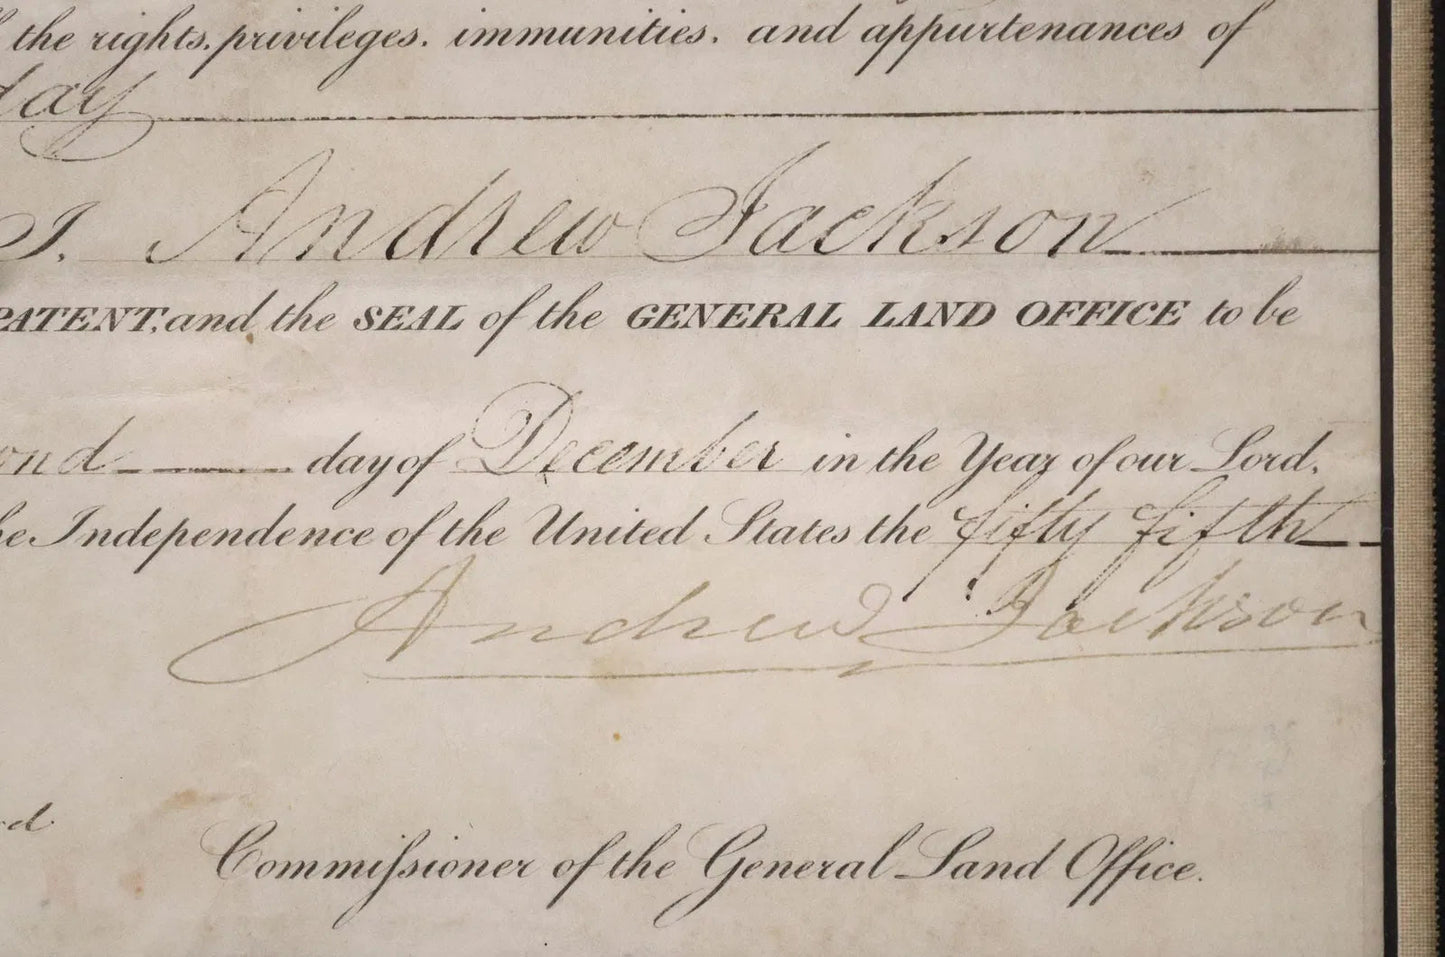 the rights, privileges, immunities, and appurtenances of
I, Andrew Jackson
PATENT, and the SEAL of the GENERAL LAND OFFICE to be
ond day of December in the Year of our Lord,
he Independence of the United States the fifty fifth
Andrew Jackson
Commissioner of the General Land Office.